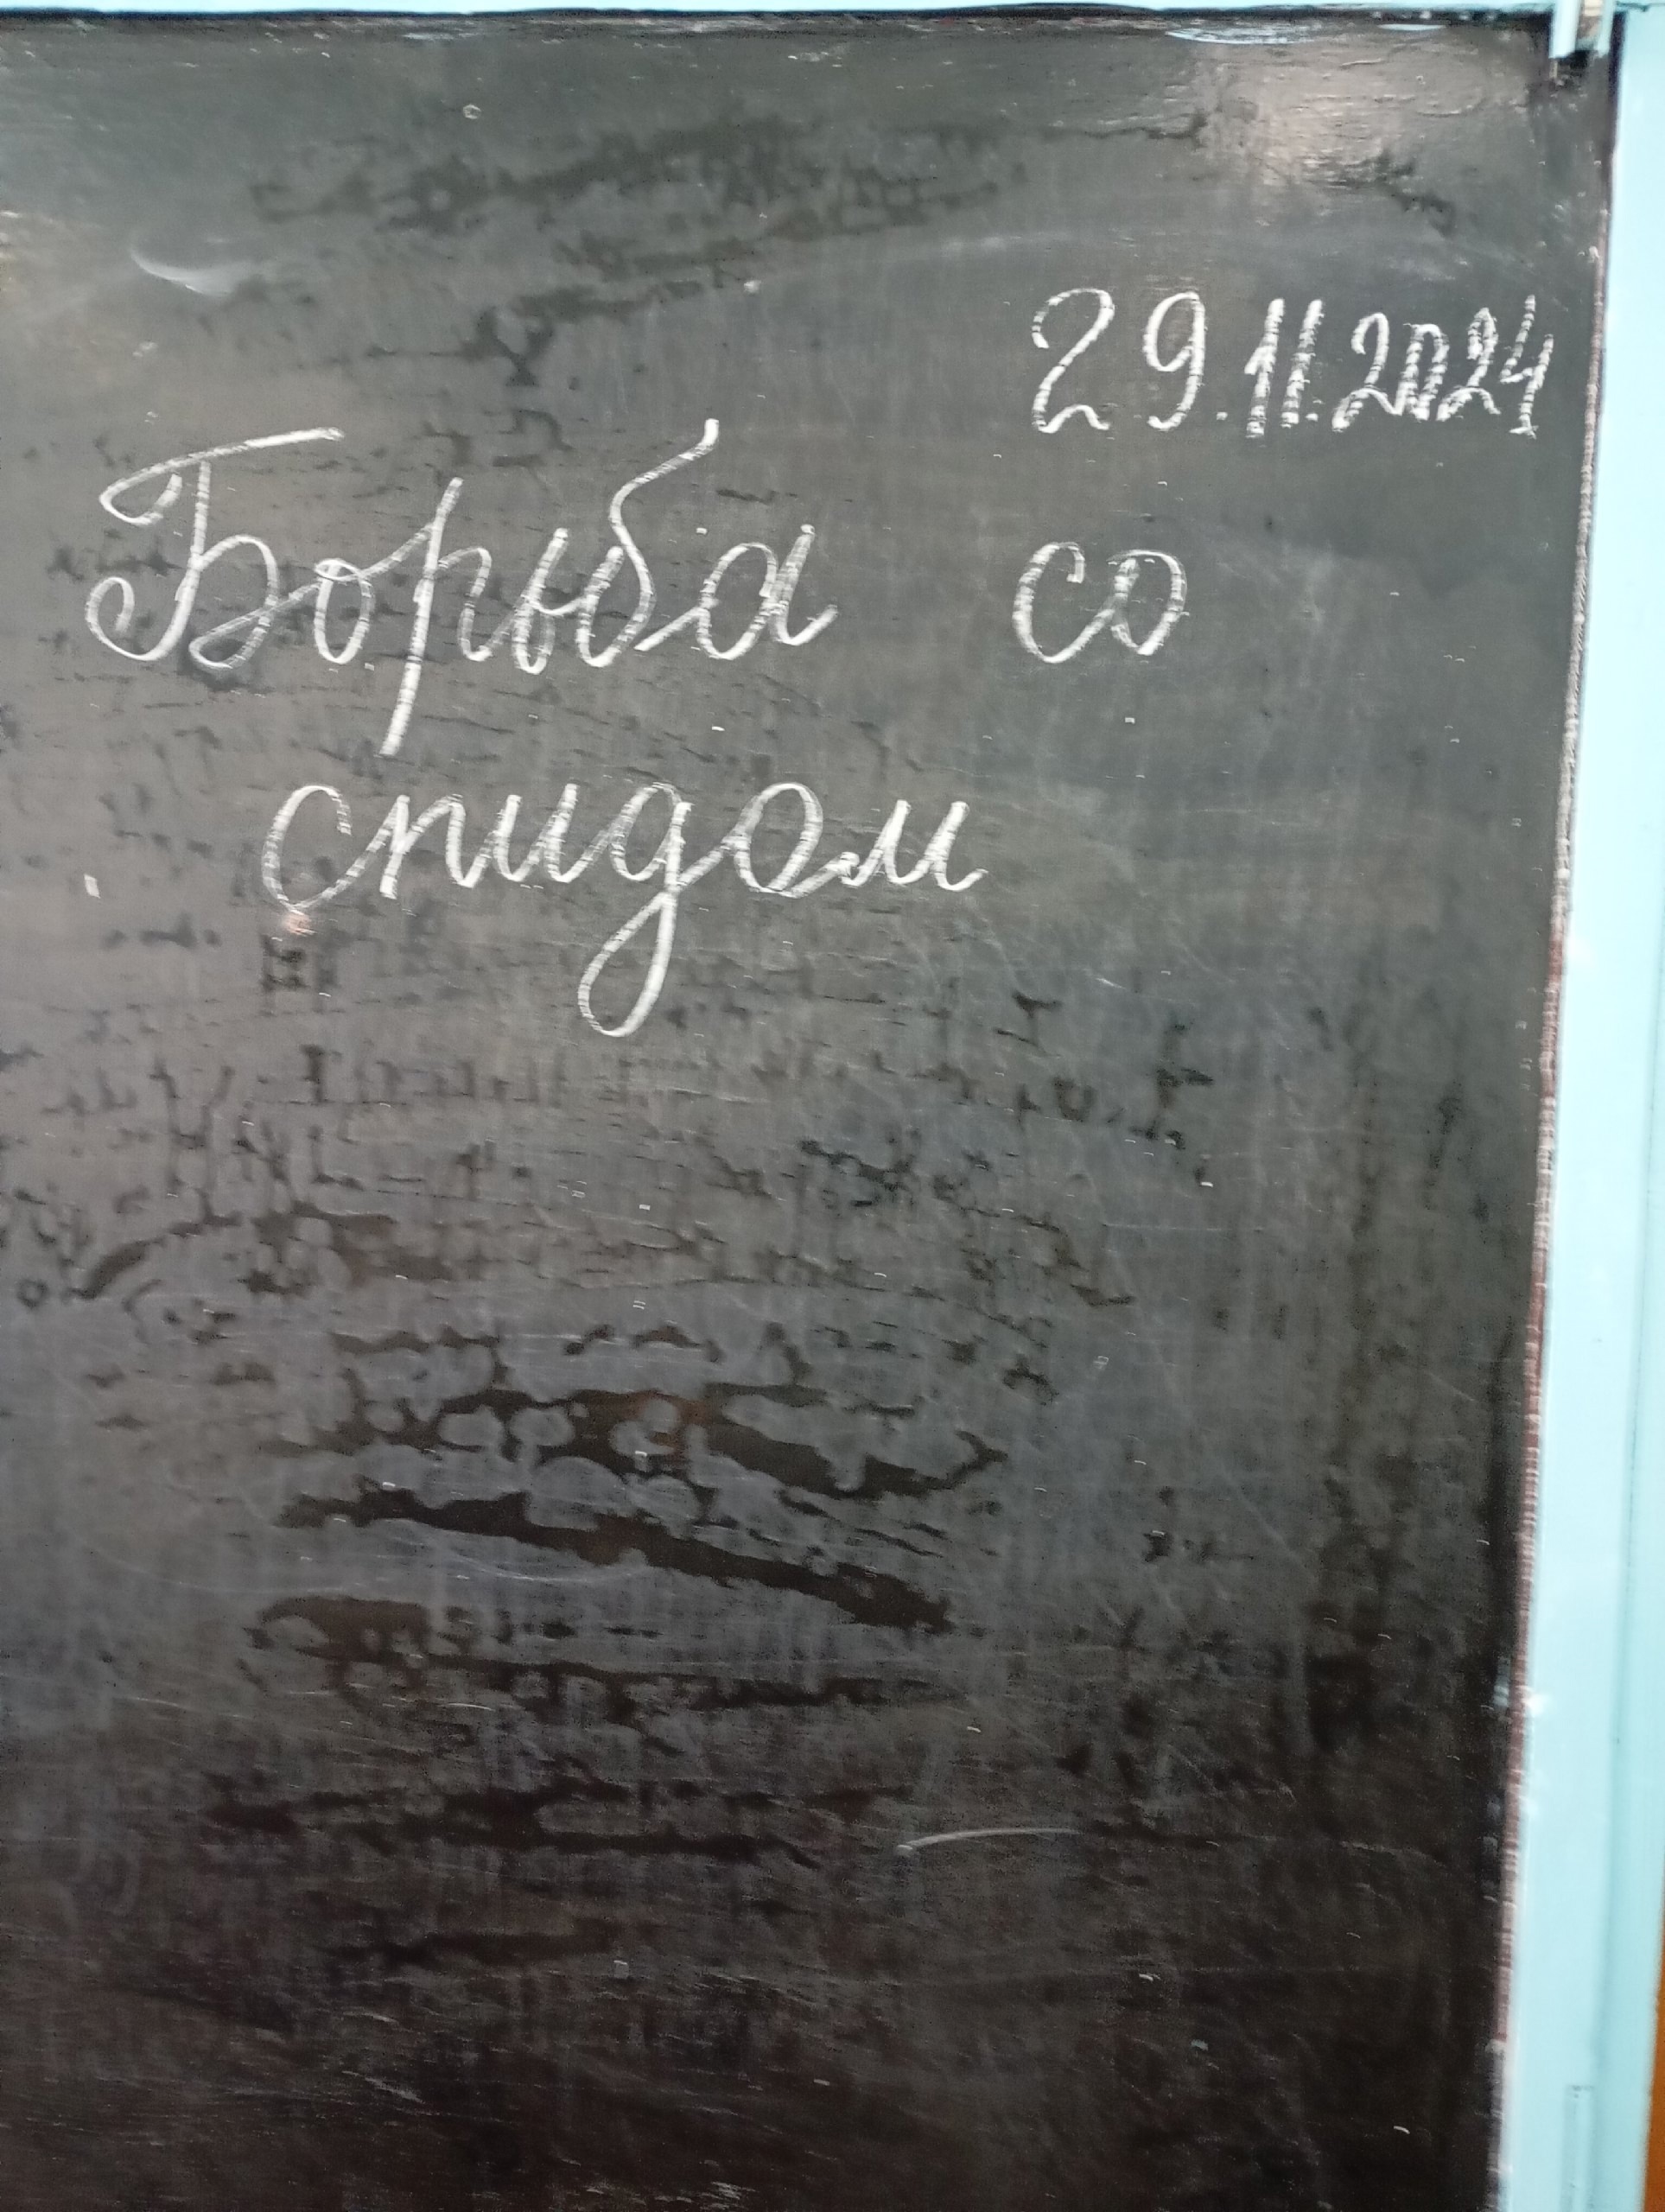 29.11.2024
Борьба со
спидом